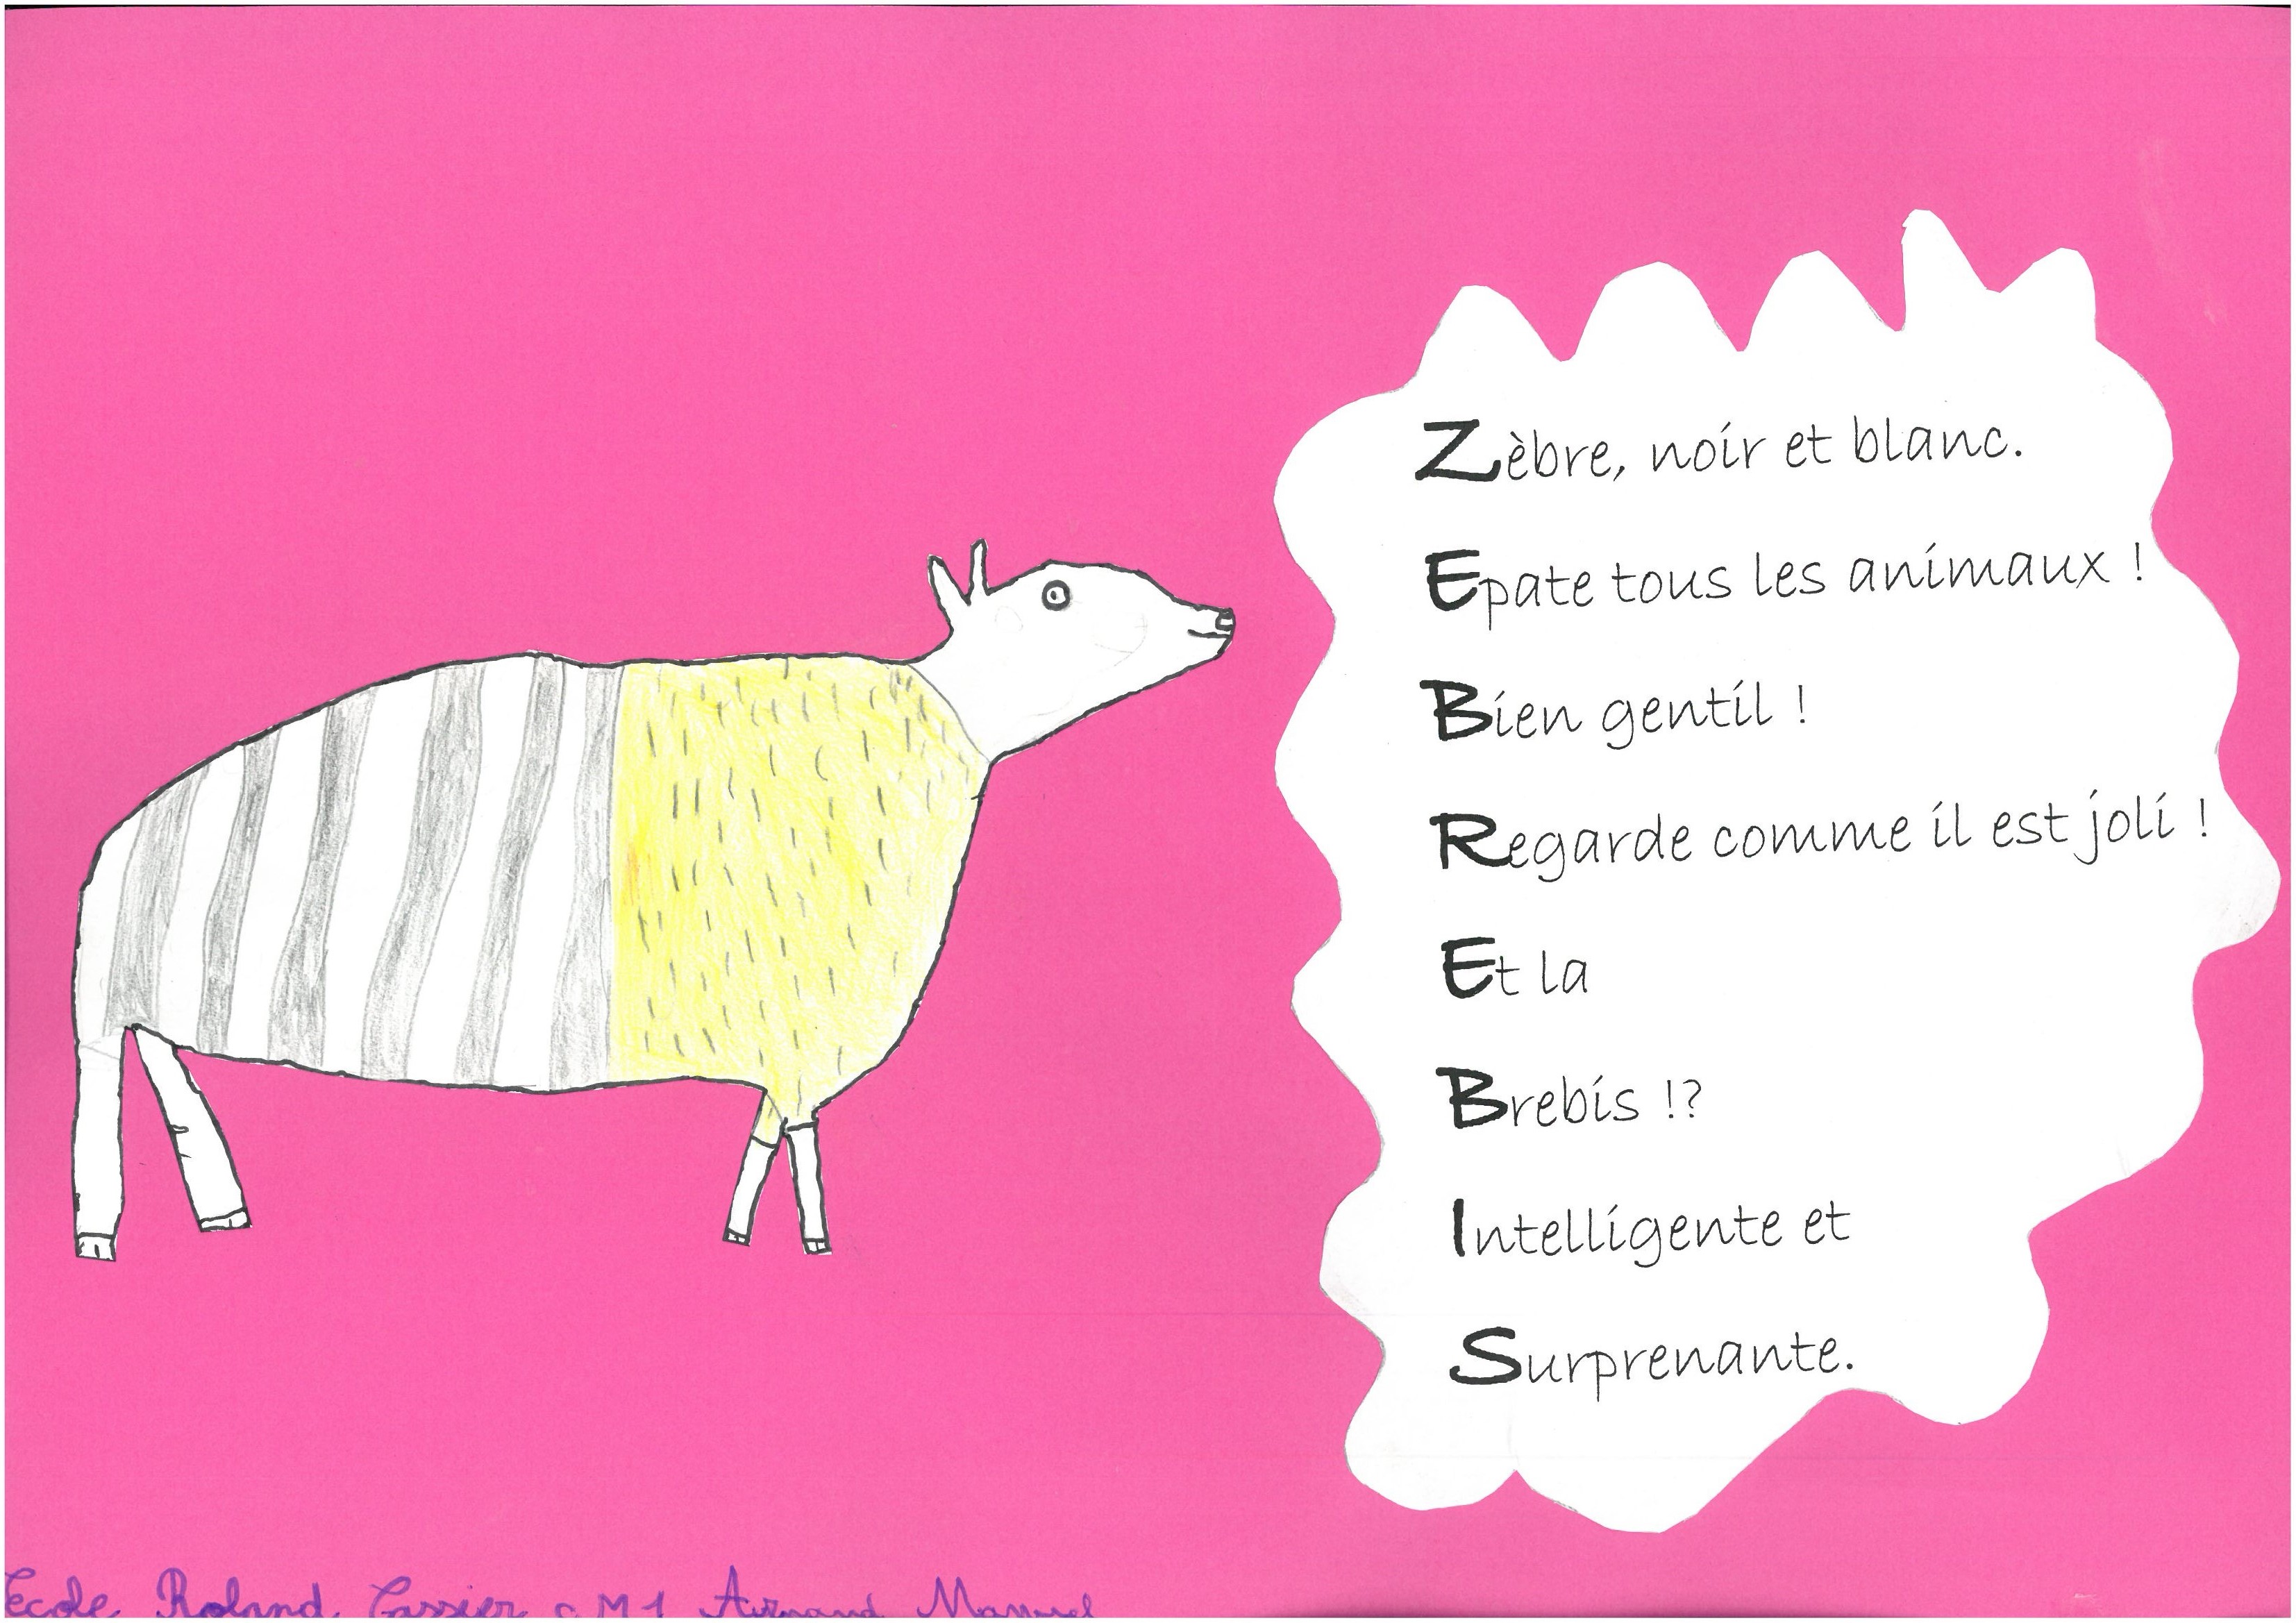 Zèbre, noir et blanc.
Epate tous les animaux !
Bien gentil !
Regarde comme il est joli !
Et la
Brebis !?
Intelligente et
Surprenante.
Ecole Roland CM1 Arnaud Manuel